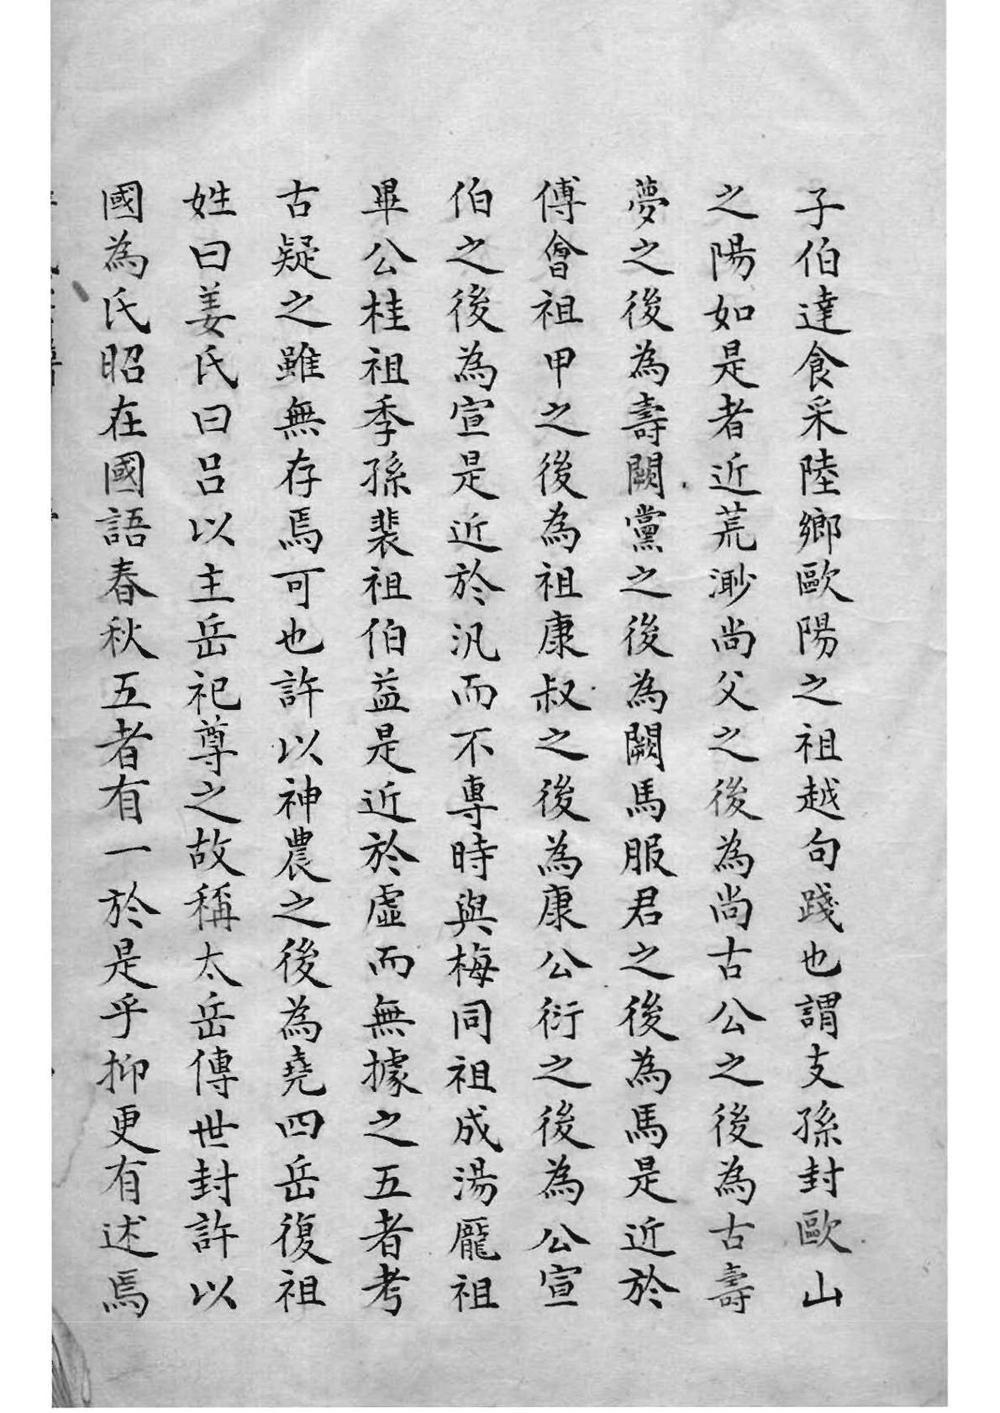 子伯達食采陸鄉歐陽之祖越句踐也謂支孫封歐山
之陽如是者近荒渺尚父之後為尚古公之後為古壽
夢之後為壽闕黨之後為闕馬服君之後為馬是近於
傅會祖甲之後為祖康叔之後為康公衍之後為公宣
伯之後為宣是近於汎而不專時與梅同祖成湯龐祖
畢公桂祖季孫裴祖伯益是近於虛而無據之五者考
古疑之雖無存焉可也許以神農之後為堯四岳復祖
姓曰姜氏曰呂以主岳祀尊之故稱太岳傳世封許以
國為氏昭在國語春秋五者有一於是乎抑更有述焉